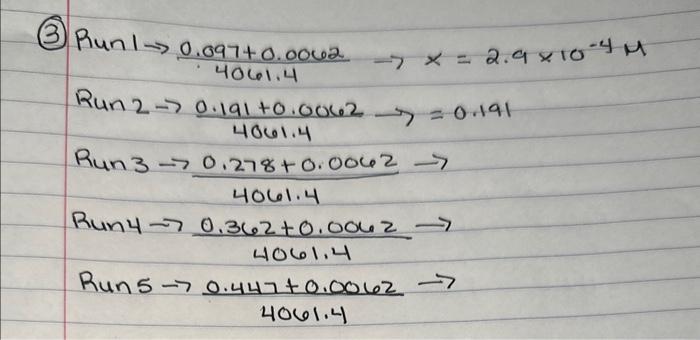 ③ Run 1 → 0.097+0.0062 / 4061.4 → x = 2.9 × 10⁻⁴ M
Run 2 → 0.191+0.0062 / 4061.4 → = 0.191
Run 3 → 0.278+0.0062 / 4061.4 →
Run 4 → 0.362+0.0062 / 4061.4 →
Run 5 → 0.447+0.0062 / 4061.4 →